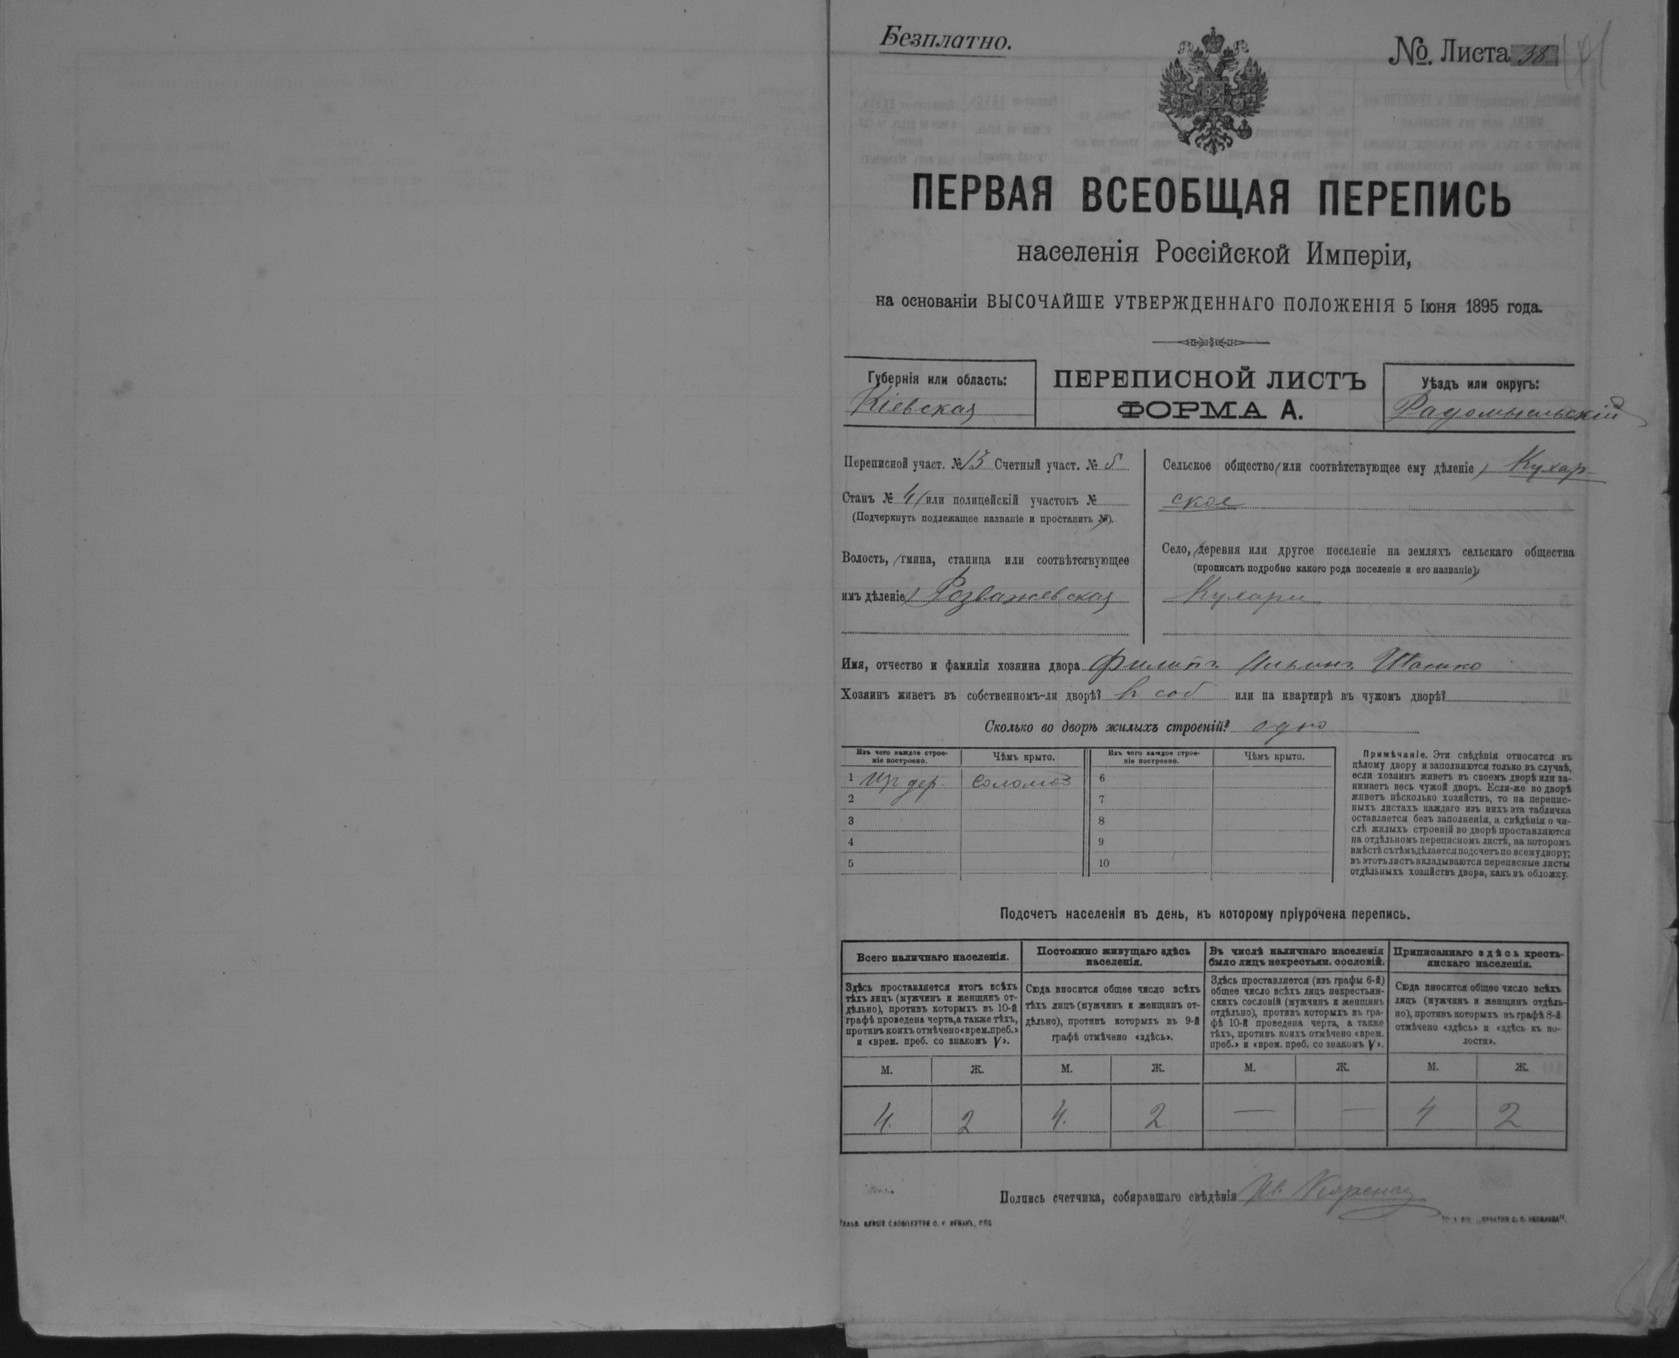 Безплатно.
№. Листа 38
ПЕРВАЯ ВСЕОБЩАЯ ПЕРЕПИСЬ
населенія Россійской Имперіи,
на основаніи ВЫСОЧАЙШЕ УТВЕРЖДЕННАГО ПОЛОЖЕНІЯ 5 Іюня 1895 года.
Губернія или область:
Кіевская
ПЕРЕПИСНОЙ ЛИСТЪ
ФОРМА А.
Уѣздъ или округъ:
Радомысльскій
Переписной участ. № 13 Счетный участ. № 6
Станъ № 4 (или полицейскій участокъ №
(Подчеркнуть подлежащее названіе и проставить №).
Волость, (гмина, станица или соотвѣтствующее
имъ дѣленіе) Розважевская
Сельское общество (или соотвѣтствующее ему дѣленіе) Кухар-
ское
Село, (деревня или другое поселеніе на земляхъ сельскаго общества
(прописать подробно какого рода поселеніе и его названіе)
Кухари
Имя, отчество и фамилія хозяина двора Филипъ Ильинъ
Хозяинъ живетъ въ собственномъ-ли дворѣ? в соб или на квартирѣ въ чужомъ дворѣ?
Сколько во дворѣ жилыхъ строеній? одно
Изъ чего каждое строе-
ніе построено.
Чѣмъ крыто.
Изъ чего каждое строе-
ніе построено.
Чѣмъ крыто.
1 Изъ дер. соломоз 6
2 7
3 8
4 9
5 10
Примѣчаніе. Эти свѣдѣнія относятся къ
цѣлому двору и заполняются только въ случаѣ,
если хозяинъ живетъ въ своемъ дворѣ или за-
нимаетъ весь чужой дворъ. Если-же во дворѣ
живетъ нѣсколько хозяйствъ, то на перепис-
ныхъ листахъ каждаго изъ нихъ эта табличка
оставляется безъ заполненія, а свѣдѣнія о чи-
слѣ жилыхъ строеній во дворѣ проставляются
на отдѣльномъ переписномъ листѣ, на которомъ
вмѣстѣ съ тѣмъ дѣлается подсчетъ по всему двору;
въ этотъ листъ вкладываются переписные листы
отдѣльныхъ хозяйствъ двора, какъ въ обложку.
Подсчетъ населенія въ день, къ которому пріурочена перепись.
Всего наличнаго населенія.
Здѣсь проставляется итогъ всѣхъ
тѣхъ лицъ (мужчинъ и женщинъ от-
дѣльно), противъ которыхъ въ 10-й
графѣ проведена черта, а также тѣхъ,
противъ коихъ отмѣчено «врем.преб.»
и «врем. преб. со знакомъ V».
Постоянно живущаго здѣсь
населенія.
Сюда вносится общее число всѣхъ
тѣхъ лицъ (мужчинъ и женщинъ от-
дѣльно), противъ которыхъ въ 9-й
графѣ отмѣчено «здѣсь».
Въ числѣ наличнаго населенія
было лицъ некрестьян. сословій.
Здѣсь проставляется (изъ графы 6-й)
общее число всѣхъ лицъ некрестьян-
скихъ сословій (мужчинъ и женщинъ
отдѣльно), противъ которыхъ въ гра-
фѣ 10-й проведена черта, а также
тѣхъ, противъ коихъ отмѣчено «врем.
преб.» и «врем. преб. со знакомъ V».
Приписаннаго здѣсь кресть-
янскаго населенія.
Сюда вносится общее число всѣхъ
лицъ (мужчинъ и женщинъ отдѣль-
но), противъ которыхъ въ графѣ 8-й
отмѣчено «здѣсь» и «здѣсь въ во-
лости».
М. Ж. М. Ж. М. Ж. М. Ж.
4. 2 4. 2 — — 4 2
Подпись счетчика, собиравшаго свѣдѣнія